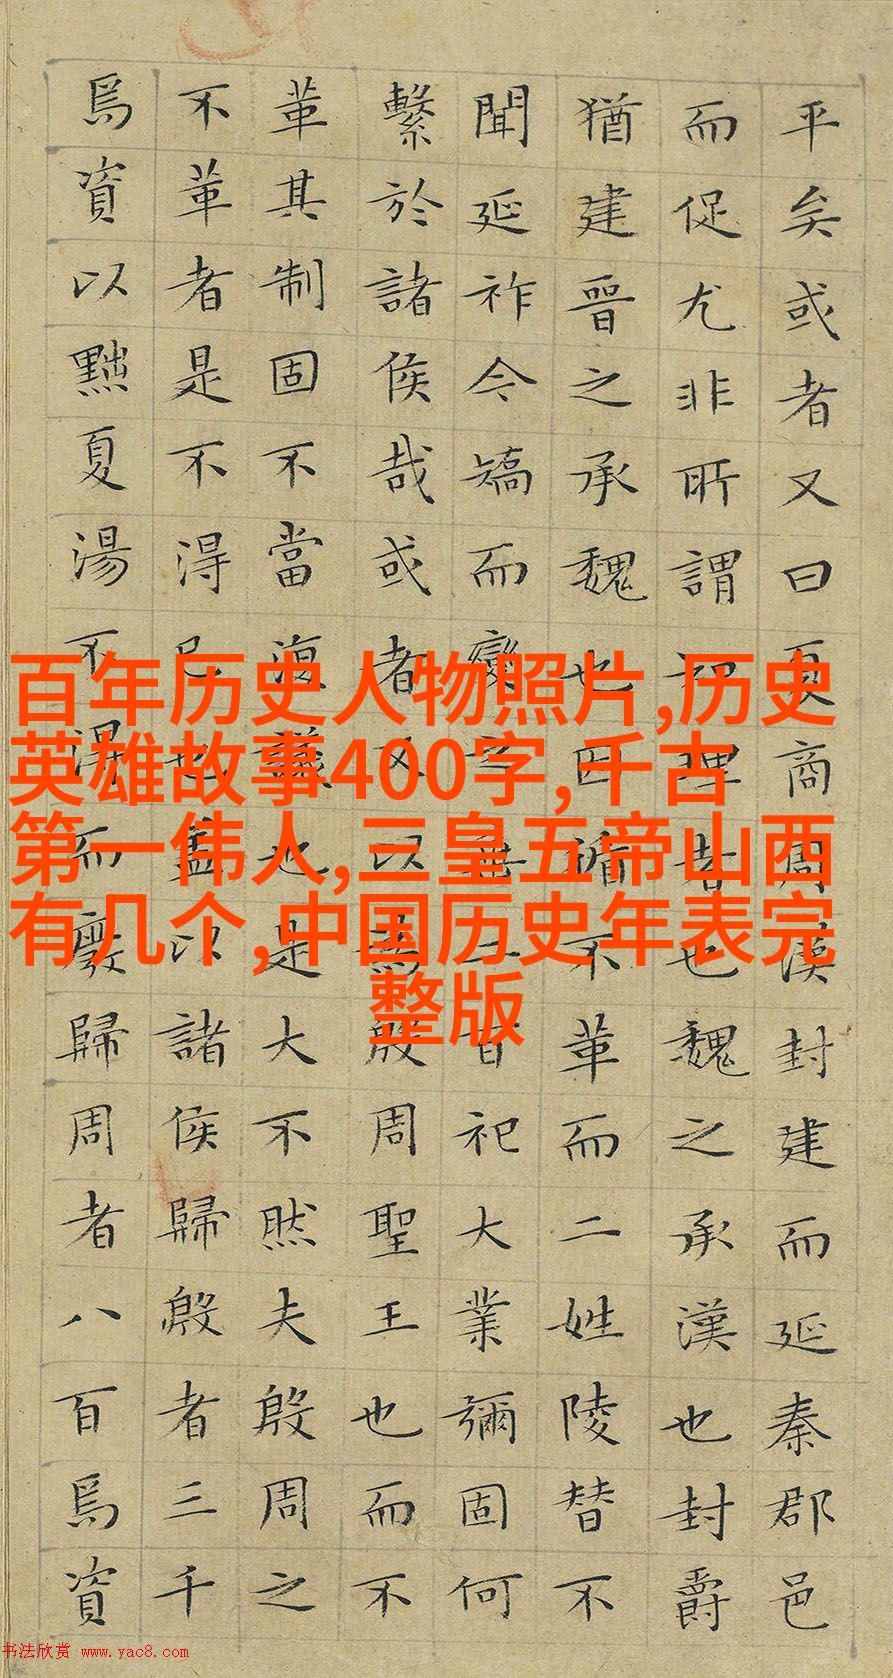 平矣或者又曰夏商周漢封建而延秦郡邑
而促尤非所謂知理者也魏之承漢也封爵
猶建晉之承魏也因循不革而二姓陵替不
聞延祚今矯而變之垂二百祀大業彌固何
繫於諸侯哉或者又以為殷周聖王也而不
革其制固不當復議也是大不然夫殷周之
不革者是不得已也蓋以諸侯歸殷者三千
焉資以黜夏湯不得而廢歸周者八百焉資
百年历史人物照片,历史
英雄故事400字,千古
第一伟人,三皇五帝山西
有几个,中国历史年表完
整版
书法欣赏 www.yac8.com